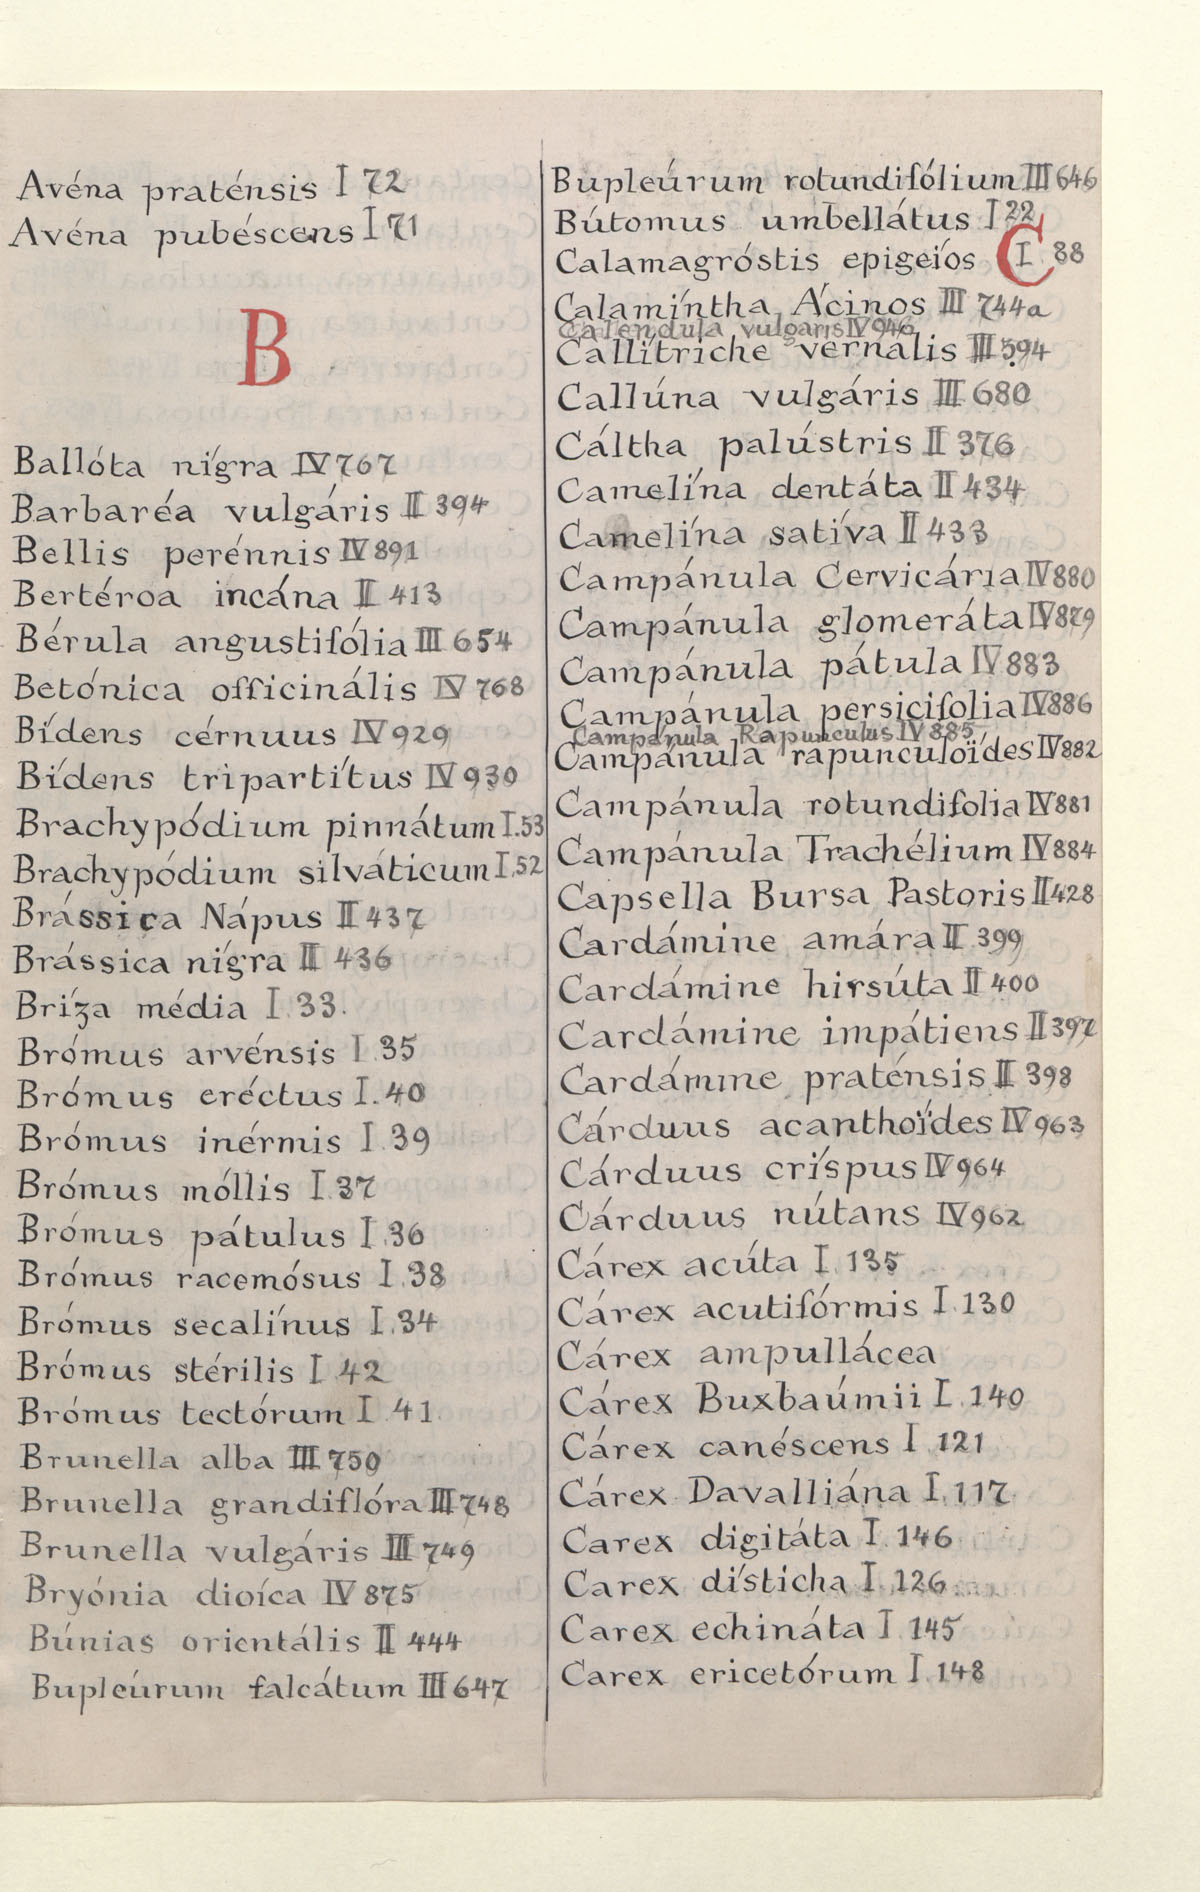 Avéna praténsis I 72
Avéna pubéscens I 71
B
Ballóta nígra IV 767
Barbaréa vulgáris II 394
Bellis perénnis IV 891
Bertéroa incána II 413
Bérula angustifólia III 654
Betónica officinális IV 768
Bídens cérnuus IV 929
Bídens tripartítus IV 930
Brachypódium pinnátum I.53
Brachypódium silváticum I.52
Brássica Nápus II 437
Brássica nígra II 436
Briza média I.33.
Brómus arvénsis I.35
Brómus eréctus I.40
Brómus inérmis I.39
Brómus móllis I.37
Brómus pátulus I.36
Brómus racemósus I.38
Brómus secalínus I.34
Brómus stérilis I.42
Brómus tectórum I.41
Brunella alba III 750
Brunella grandiflóra III 748
Brunella vulgáris III 749
Bryónia dioíca IV 875
Búnias orientális II 444
Bupleúrum falcátum III 647
Bupleúrum rotundifólium III 646
Bútomus umbellátus I 22
C
Calamagróstis epigeíos I.88
Calamíntha Ácinos III 744a
Callendula vulgaris IV 946
Callítriche vernalis III 594
Callúna vulgáris III 680
Cáltha palústris II 376
Camelína dentáta II 434
Camelína satíva II 433
Campánula Cervicária IV 880
Campánula glomeráta IV 879
Campánula pátula IV 883
Campánula persicifolia IV 886
Campánula Rapunculus IV 885
Campánula rapunculoïdes IV 882
Campánula rotundifolia IV 881
Campánula Trachélium IV 884
Capsella Bursa Pastoris II 428
Cardámine amára II 399
Cardámine hirsúta II 400
Cardámine impátiens II 397
Cardámine praténsis II 398
Cárduus acanthoïdes IV 963
Cárduus críspus IV 964
Cárduus nútans IV 962
Cárex acúta I.135
Cárex acutifórmis I.130
Cárex ampullácea
Cárex Buxbaúmii I.140
Cárex canéscens I.121
Cárex Davalliána I.117
Carex digitáta I.146
Carex dísticha I.126
Carex echináta I.145
Carex ericetórum I.148